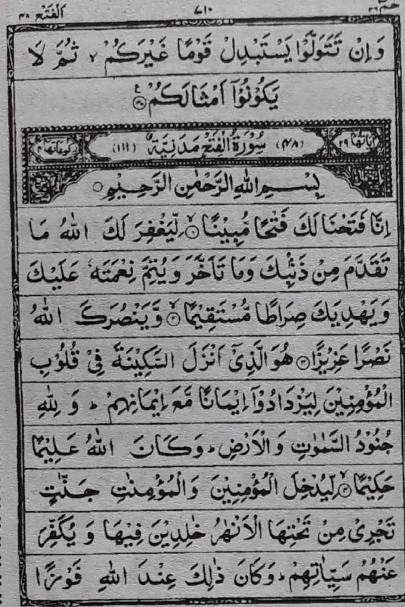 حٰمٓ ٢٦ ٧١٠ الْفَتْح ٤٨
وَ اِنْ تَتَوَلَّوْا يَسْتَبْدِلْ قَوْمًا غَيْرَكُمْ ۙ ثُمَّ لَا
يَكُوْنُوْٓا اَمْثَالَكُمْ ۟
اٰيَاتُهَا ٢٩ (٤٨) سُوْرَةُ الْفَتْحِ مَدَنِيَّةٌ (١١١) رُكُوْعَاتُهَا ٤
بِسْمِ اللهِ الرَّحْمٰنِ الرَّحِيْمِ
اِنَّا فَتَحْنَا لَكَ فَتْحًا مُّبِيْنًا ۙ لِّيَغْفِرَ لَكَ اللهُ مَا
تَقَدَّمَ مِنْ ذَنْۢبِكَ وَمَا تَاَخَّرَ وَيُتِمَّ نِعْمَتَهٗ عَلَيْكَ
وَ يَهْدِيَكَ صِرَاطًا مُّسْتَقِيْمًا ۙ وَّيَنْصُرَكَ اللهُ
نَصْرًا عَزِيْزًا ۟ هُوَ الَّذِيْٓ اَنْزَلَ السَّكِيْنَةَ فِيْ قُلُوْبِ
الْمُؤْمِنِيْنَ لِيَزْدَادُوْٓا اِيْمَانًا مَّعَ اِيْمَانِهِمْ ؕ وَ لِلّٰهِ
جُنُوْدُ السَّمٰوٰتِ وَ الْاَرْضِ ؕ وَكَانَ اللهُ عَلِيْمًا
حَكِيْمًا ۙ لِّيُدْخِلَ الْمُؤْمِنِيْنَ وَ الْمُؤْمِنٰتِ جَنّٰتٍ
تَجْرِيْ مِنْ تَحْتِهَا الْاَنْهٰرُ خٰلِدِيْنَ فِيْهَا وَ يُكَفِّرَ
عَنْهُمْ سَيِّاٰتِهِمْ ؕ وَكَانَ ذٰلِكَ عِنْدَ اللهِ فَوْزًا